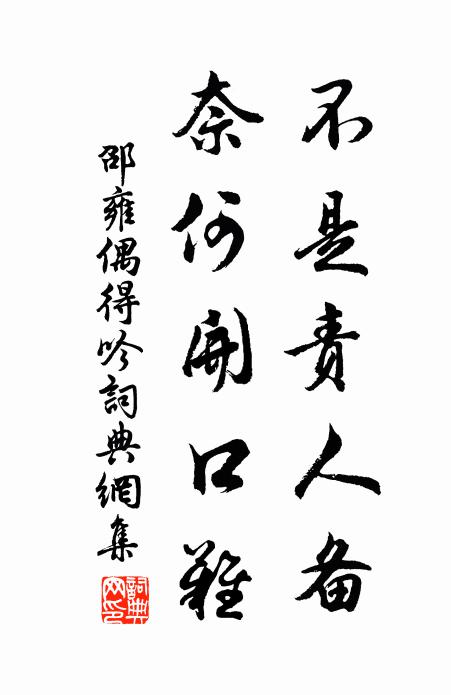 不是責人备
奈何開口難
邵雍偶得吟詞典網集
詞典网印